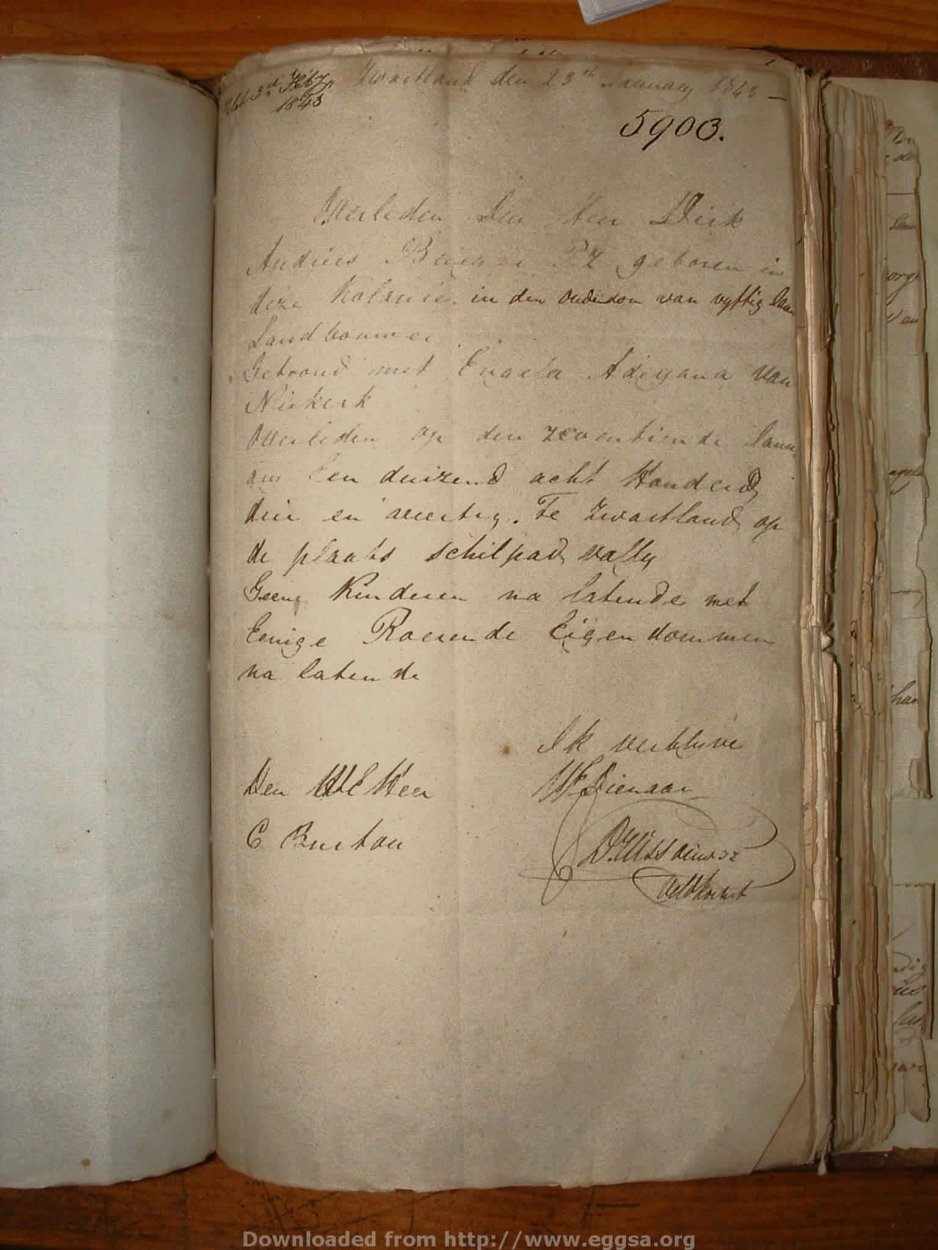 3rd Feby Zwartland den 23th Januarij 1843 –
1843
5903.
Overleden Den Heer Dirk
Andries geboren in
deze Kolonie in den ouderdom van vyftig Jaar
Landbouwer
Getroud met Engela Adryana van
Niekerk
Overleden op den zeventiende Janu
Een duizend acht Honderd
drie en veertig. Te Zwartland op
de plaats schilpad vally
Geene Kinderen na latende met
Eenige Roerende Eigendommen
na latende
Ik verblyve
Den WE Heer Dienaar
C. Burton
Veldkornet
Downloaded from http://www.eggsa.org